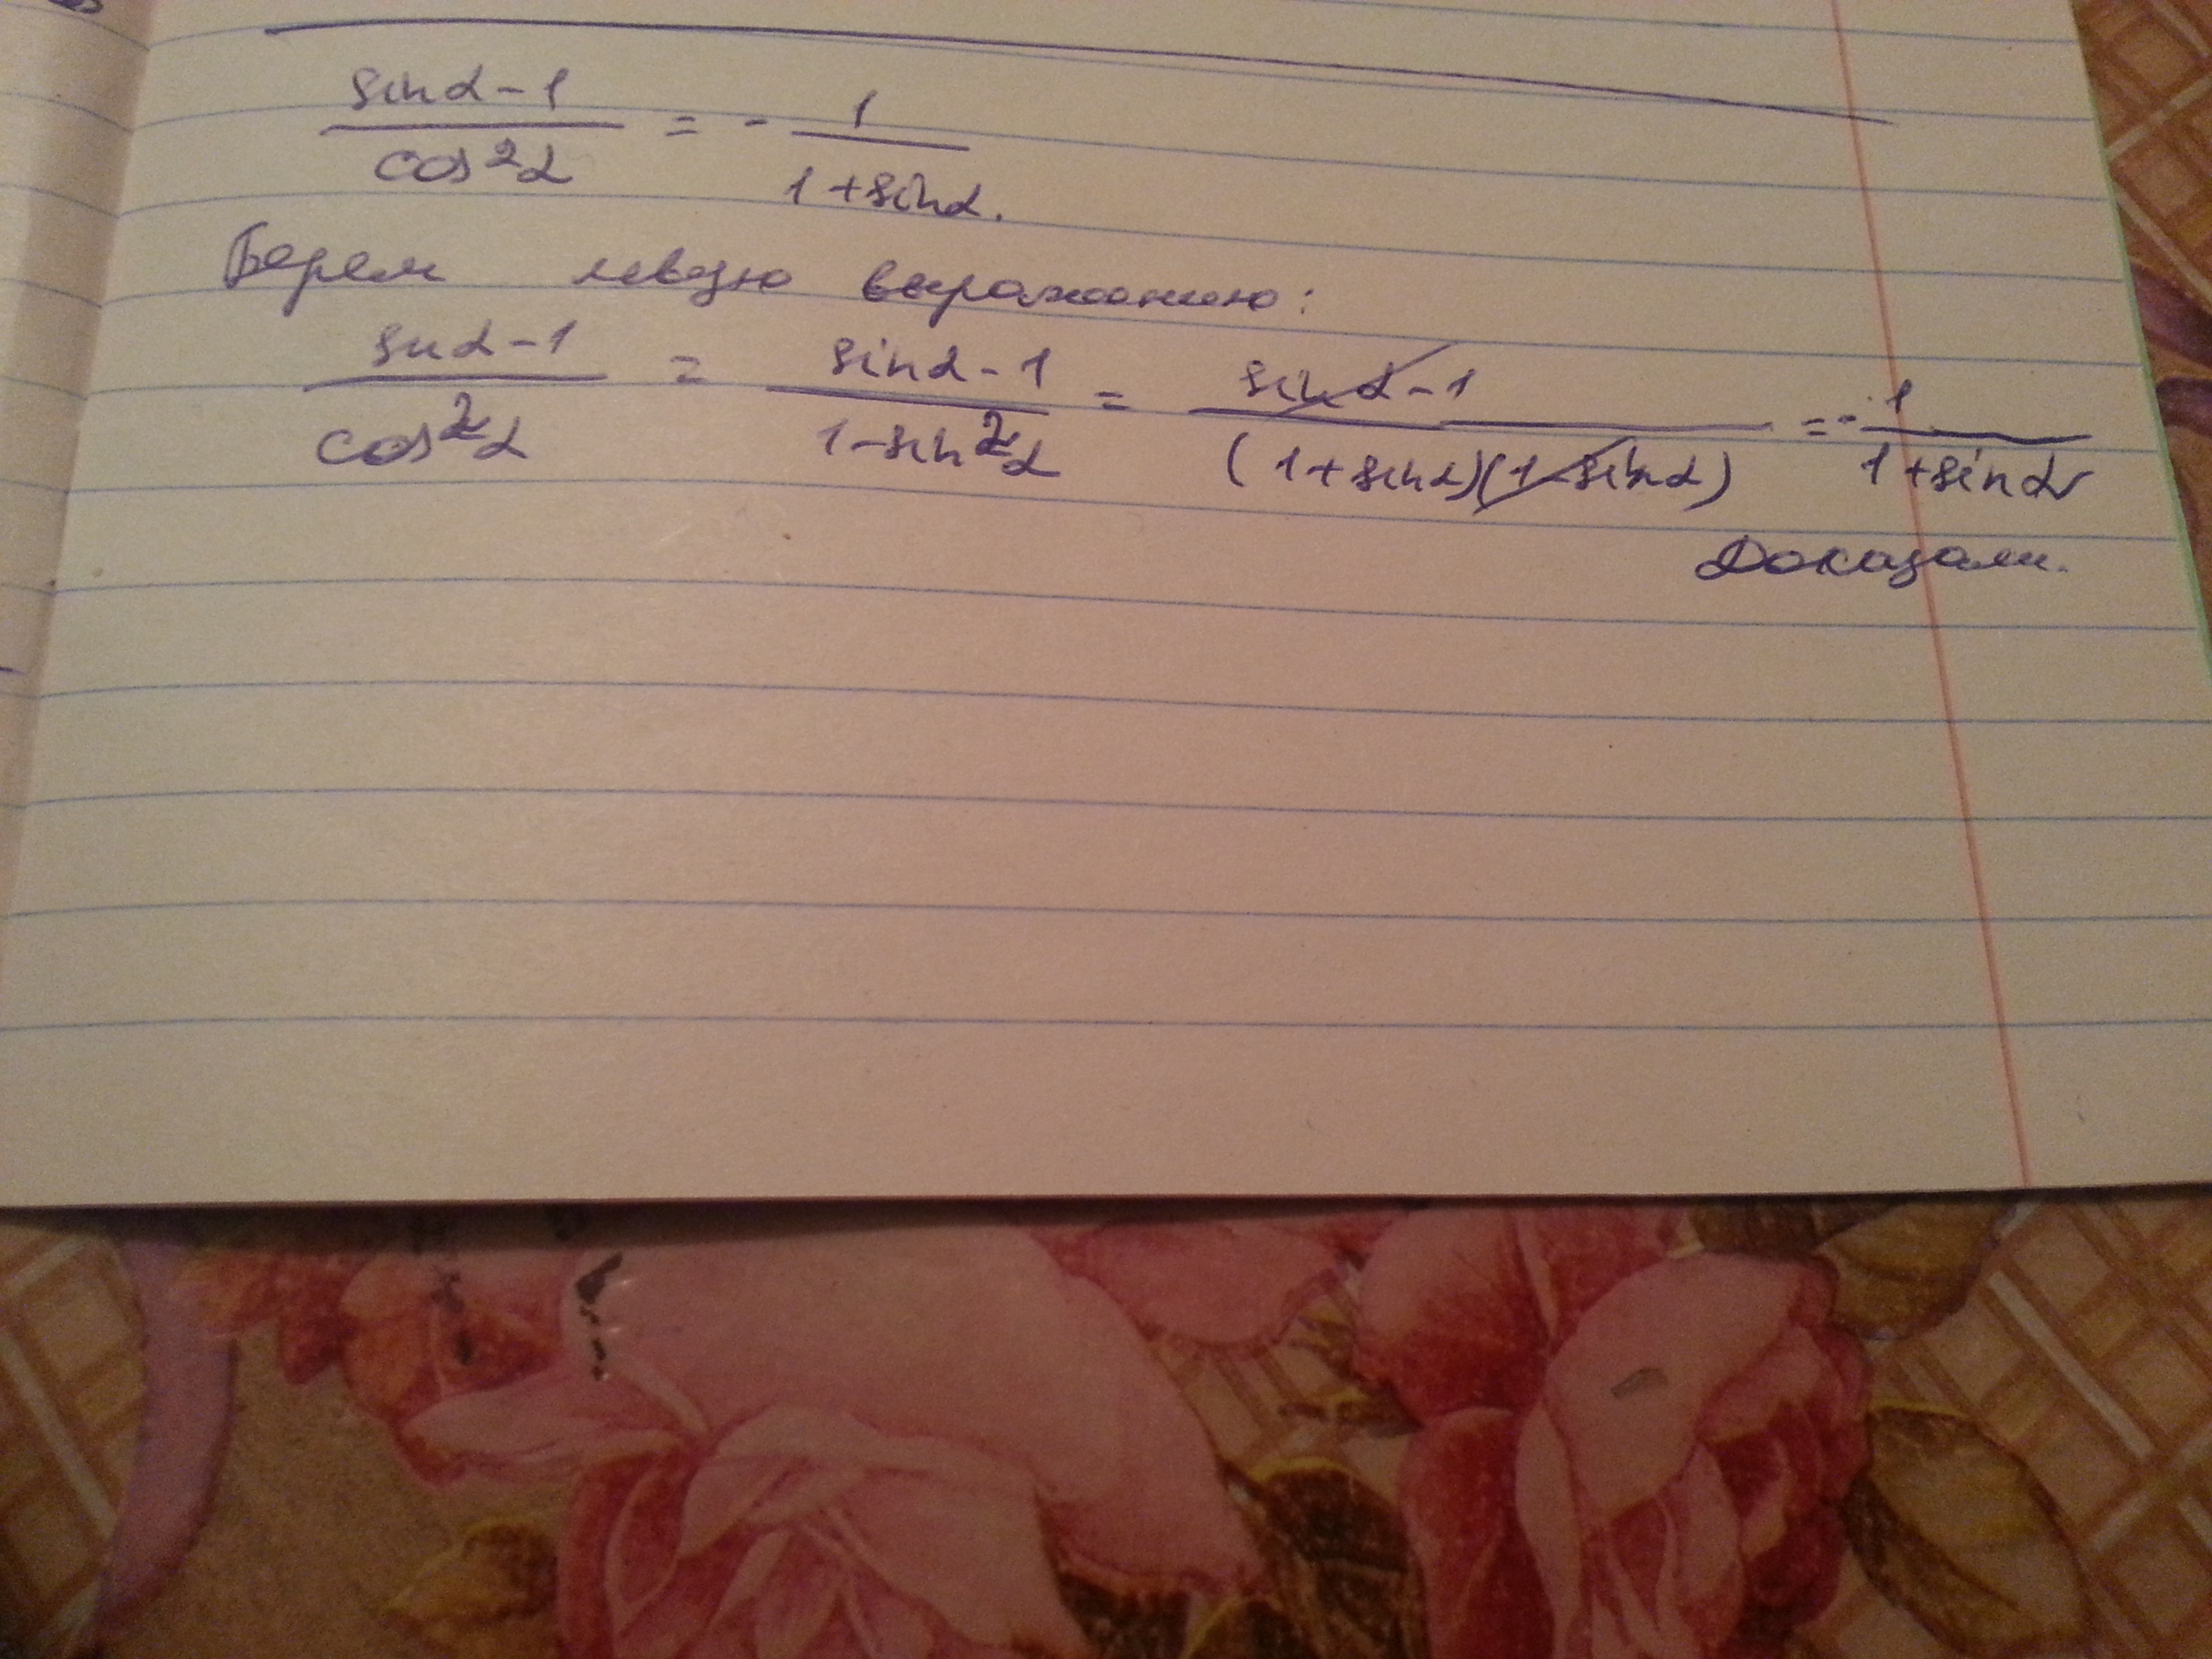 sinα-1 / cos²α = - 1 / 1+sinα.
Берем левую выражению:
sinα-1 / cos²α = sinα-1 / 1-sin²α = sinα-1 / (1+sinα)(1-sinα) = - 1 / 1+sinα
Доказали.